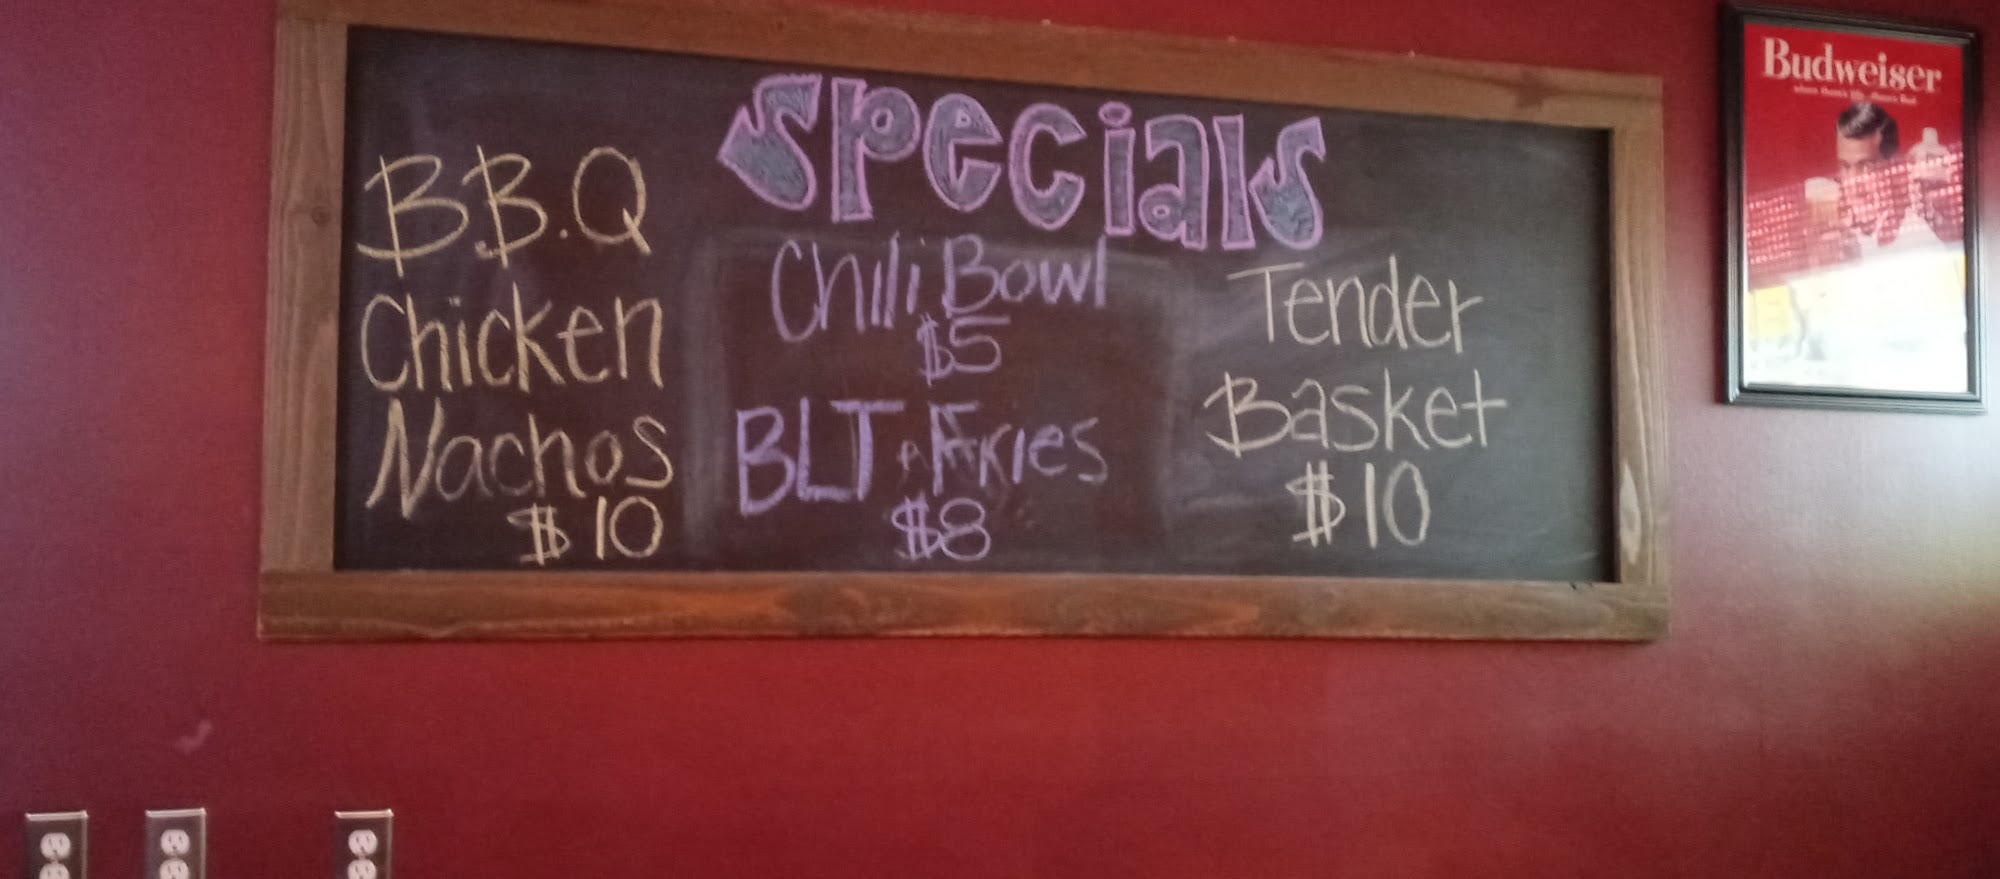 Specials
B.B.Q
Chicken
Nachos
$10
Chili Bowl
$5
BLT & Fries
$8
Tender
Basket
$10
Budweiser
where there's life...there's Bud